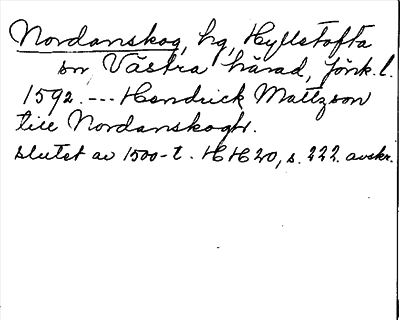 Nordanskog, hg, Hyllstofta
sn Västra härad, Jönk. l.
1592. --- Hendrick Mattzson
till Nordanskogh.
slutet av 1500-t. HH20, s. 222. avskr.